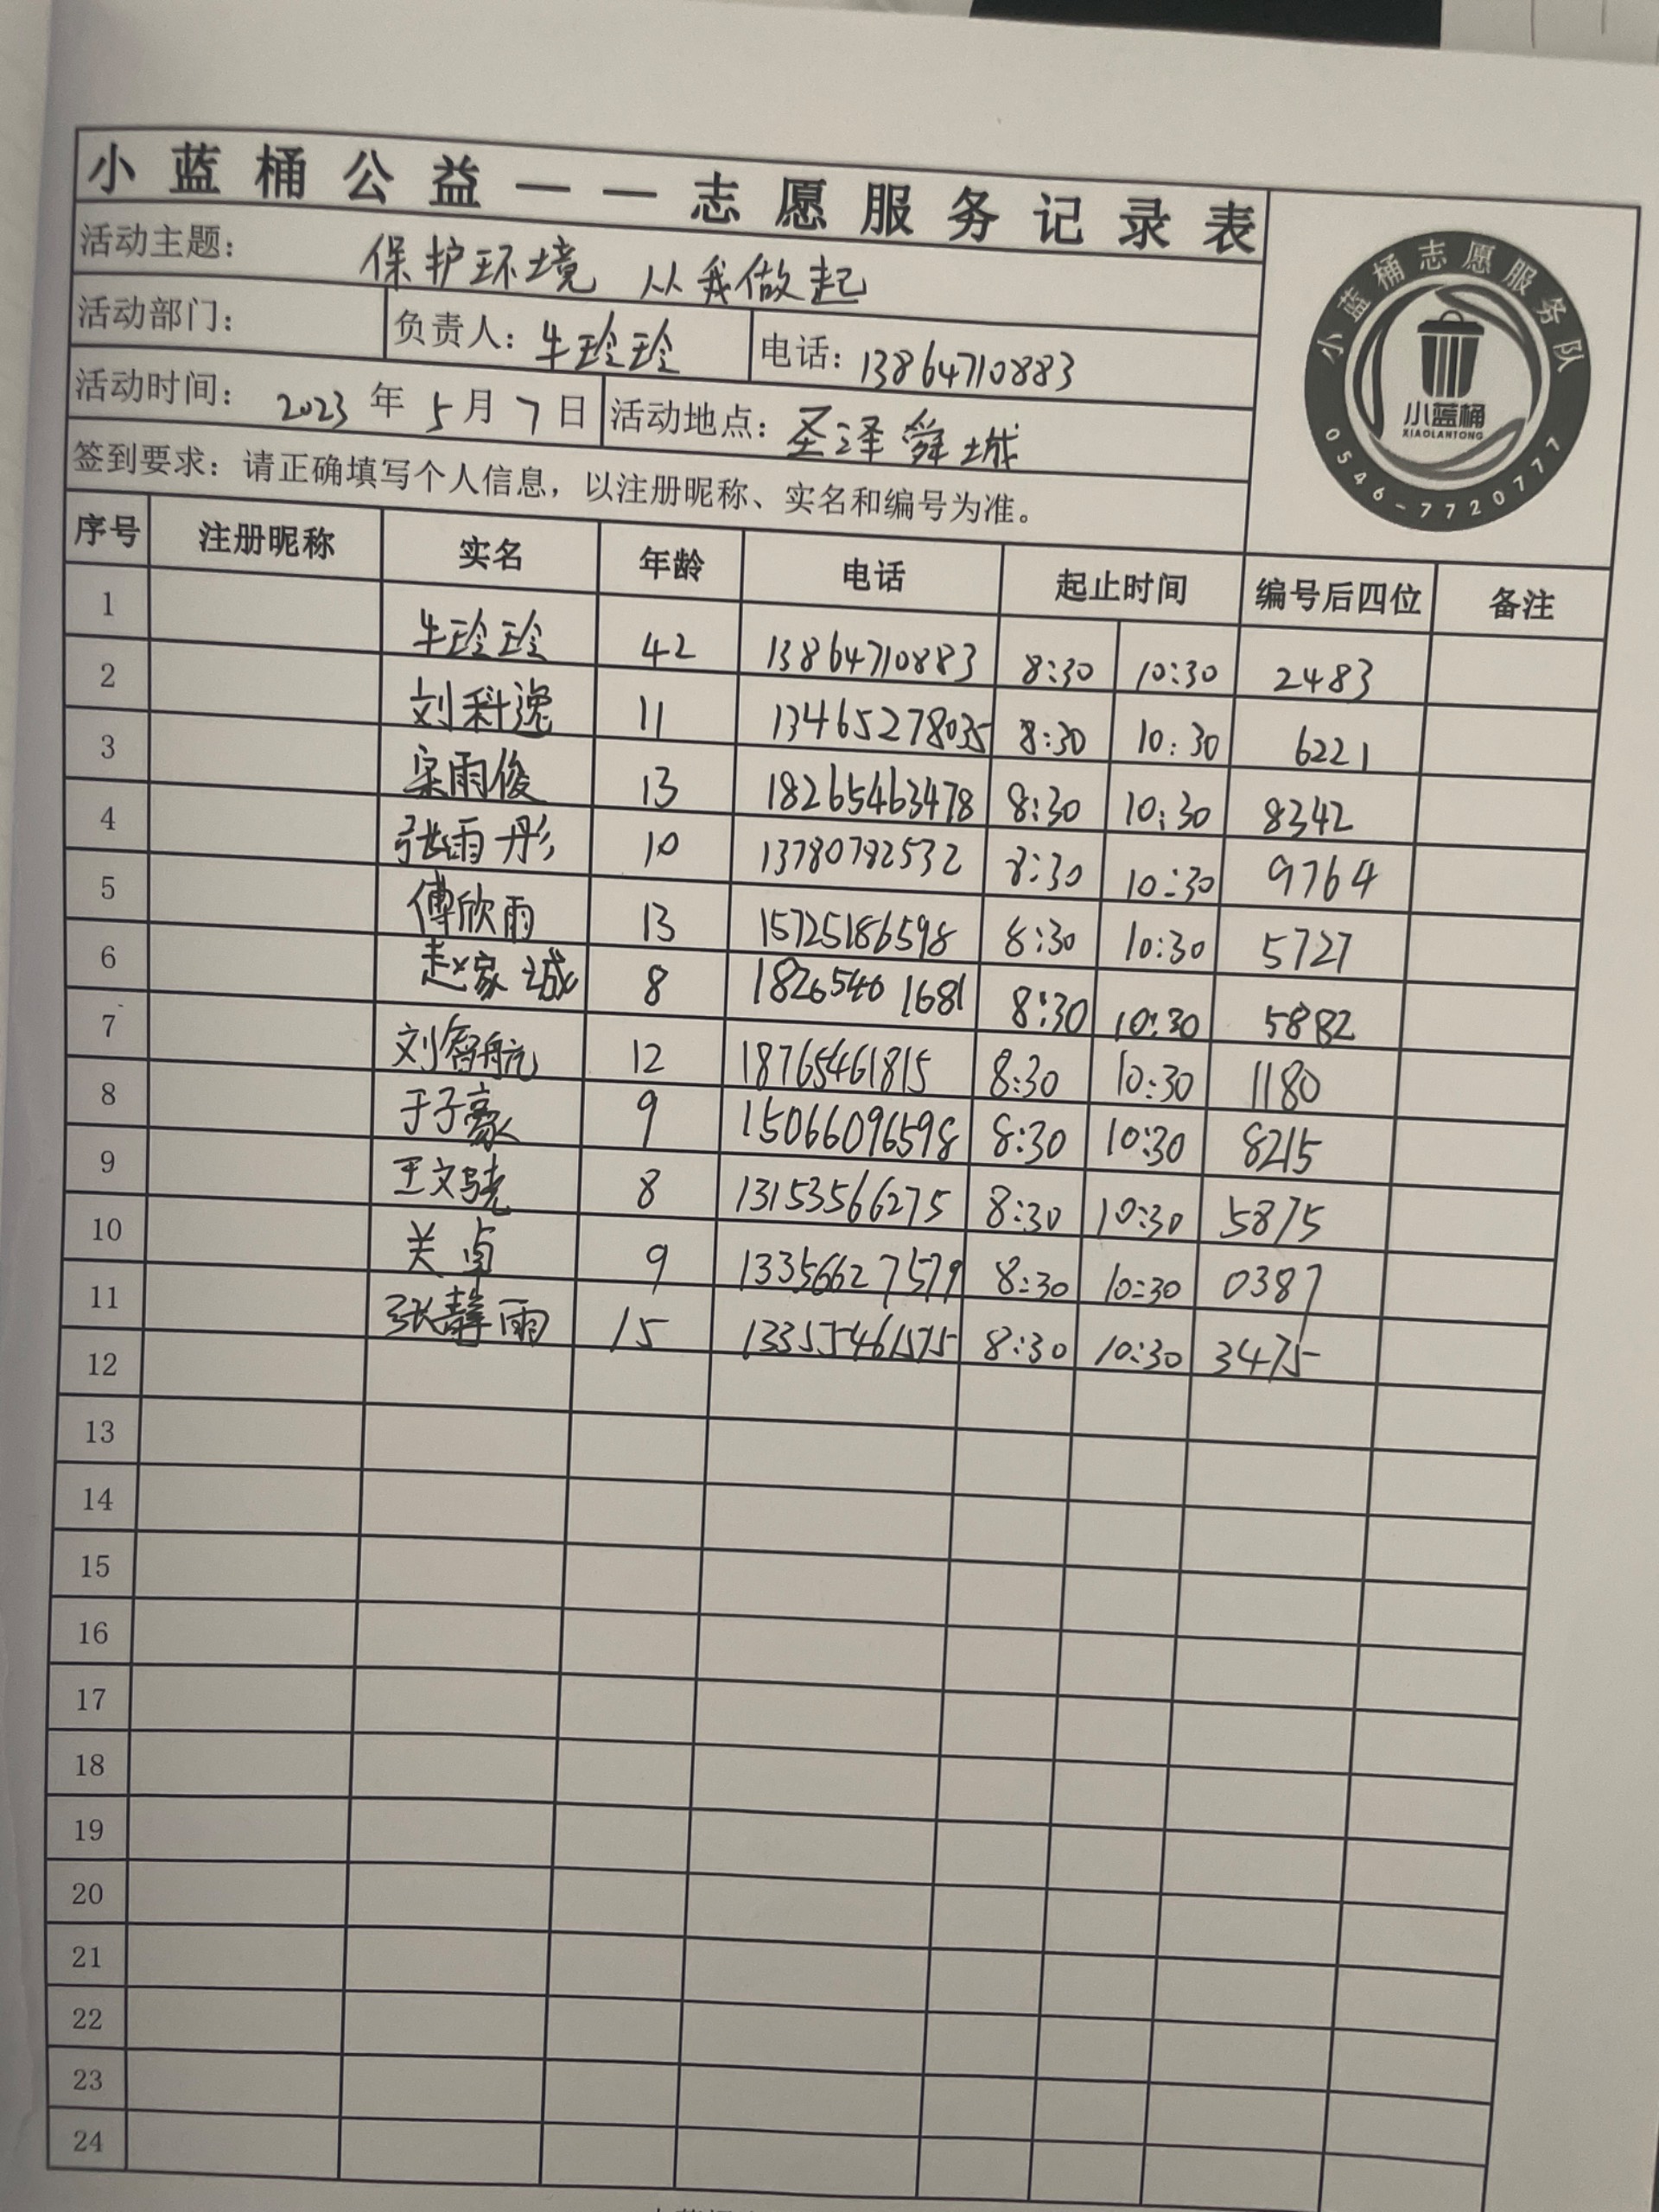 小蓝桶公益——志愿服务记录表
活动主题： 保护环境 从我做起
活动部门： 负责人：牛玲玲 电话：13864710883
活动时间： 2023年5月7日 活动地点：圣泽舜城
签到要求：请正确填写个人信息，以注册昵称、实名和编号为准。
小蓝桶志愿服务队
小蓝桶
XIAOLANTONG
0546-7720777
序号 注册昵称 实名 年龄 电话 起止时间 编号后四位 备注
1 牛玲玲 42 13864710883 8:30 10:30 2483
2 刘科逸 11 13465278035 8:30 10:30 6221
3 梁雨俊 13 18265463478 8:30 10:30 8342
4 张雨彤 10 13780782532 8:30 10:30 9764
5 傅欣雨 13 15725186598 8:30 10:30 5727
6 赵家诚 8 18265401681 8:30 10:30 5882
7 刘智航 12 18765461815 8:30 10:30 1180
8 于子豪 9 15066096598 8:30 10:30 8215
9 王文骁 8 13153566275 8:30 10:30 5875
10 关贞 9 13356627579 8:30 10:30 0387
11 张静雨 15 13355461575 8:30 10:30 3475
12
13
14
15
16
17
18
19
20
21
22
23
24